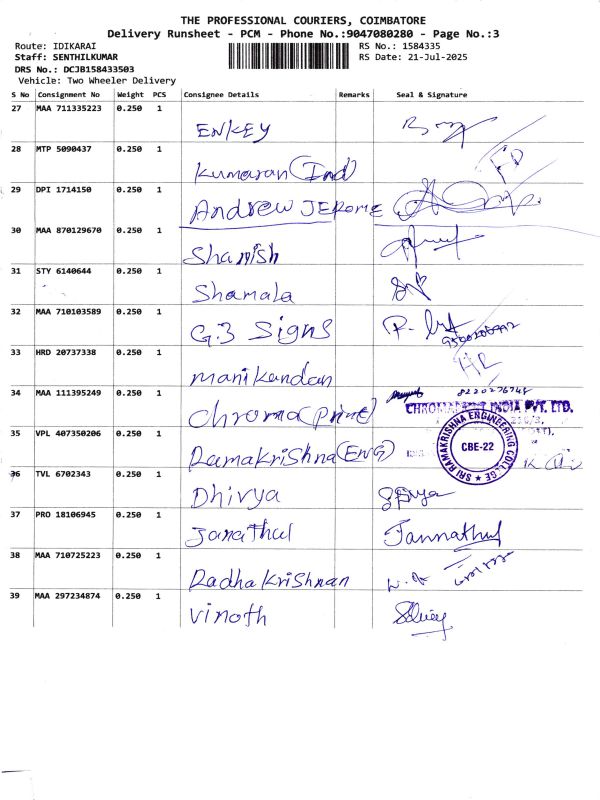 THE PROFESSIONAL COURIERS, COIMBATORE
Delivery Runsheet - PCM - Phone No.:9047080280 - Page No.:3
Route: IDIKARAI RS No.: 1584335
Staff: SENTHILKUMAR RS Date: 21-Jul-2025
DRS No.: DCJB158433503
Vehicle: Two Wheeler Delivery
S No Consignment No Weight PCS Consignee Details Remarks Seal & Signature
27 MAA 711335223 0.250 1
ENKEY
28 MTP 5090437 0.250 1
Kumaran (Ind)
29 DPI 1714150 0.250 1
Andrew JERome
30 MAA 870129670 0.250 1
Shanish
31 STY 6140644 0.250 1
Shamala
32 MAA 710103589 0.250 1
G.3 Signs
33 HRD 20737338 0.250 1
Manikandan
34 MAA 111395249 0.250 1 8220276748
Chroma (Print) CHROMAPRINT INDIA PVT. LTD.
35 VPL 407350206 0.250 1
Ramakrishna (ENG) SRI RAMAKRISHNA ENGINEERING COLLEGE CBE-22
36 TVL 6702343 0.250 1
Dhivya
37 PRO 18106945 0.250 1
Janathul Jannathul
38 MAA 710725223 0.250 1
Radha Krishnan
39 MAA 297234874 0.250 1
Vinoth